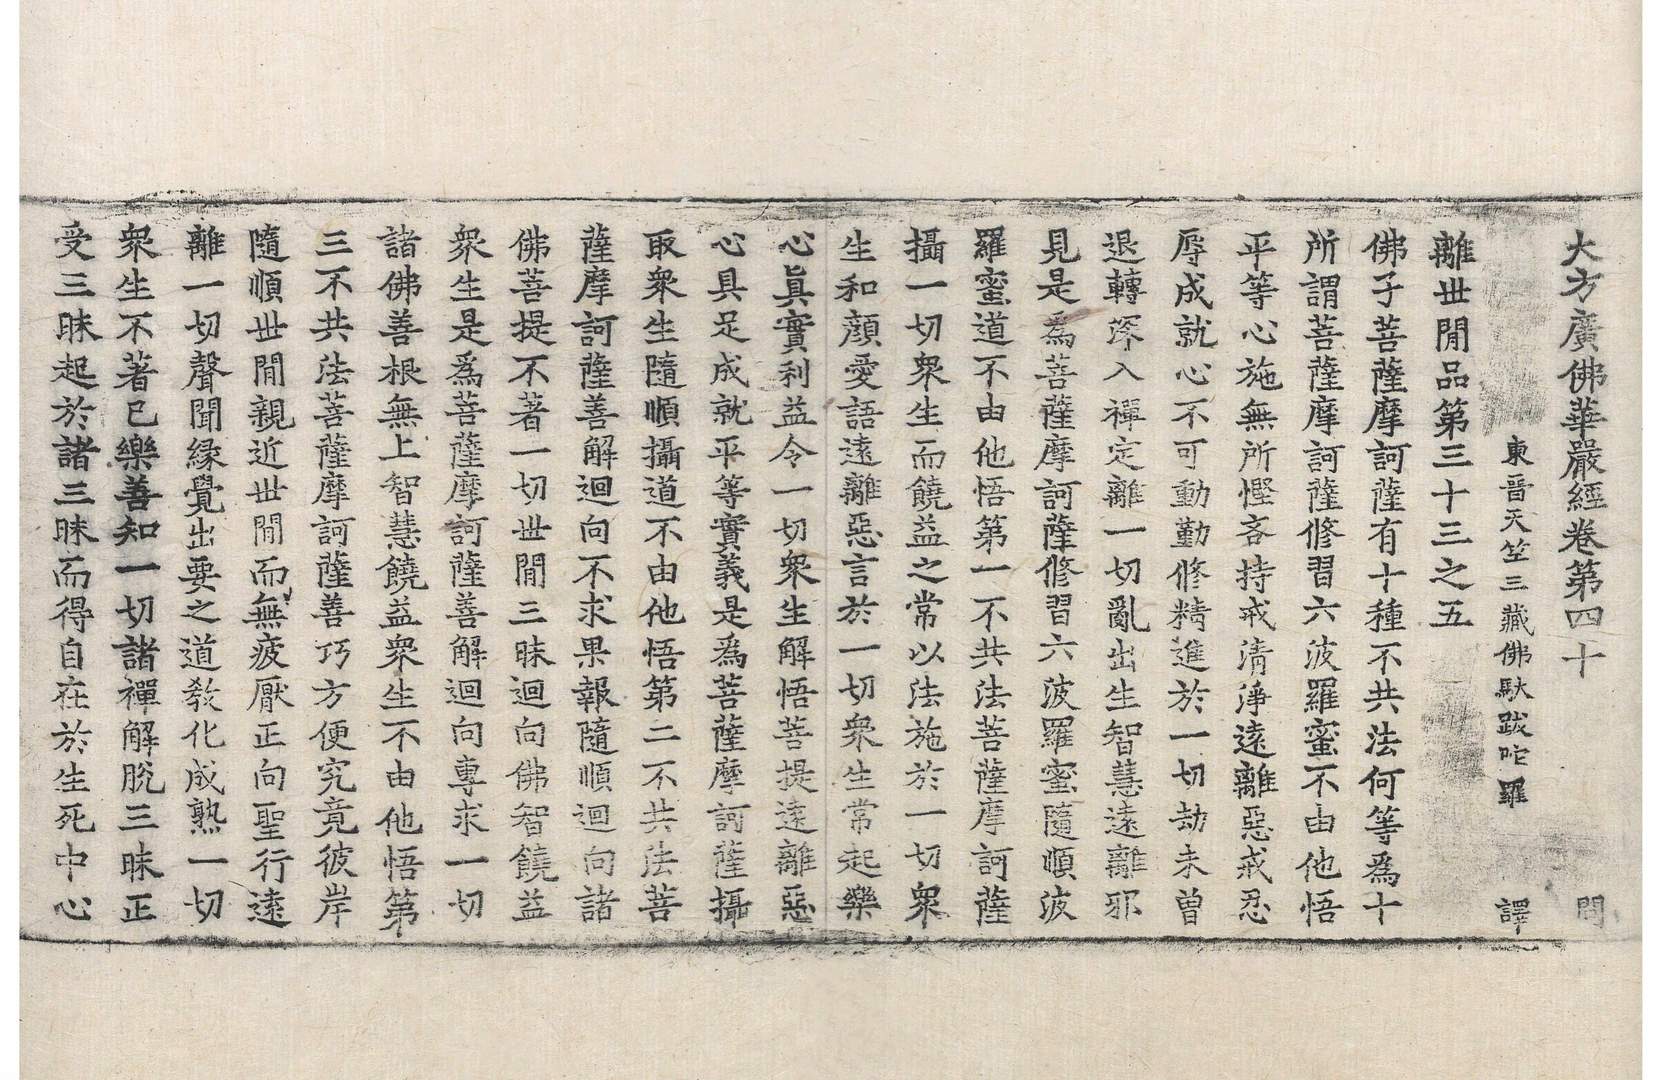 大方廣佛華嚴經卷第四十 問
東晉天竺三藏佛馱跋陀羅 譯
離世間品第三十三之五
佛子菩薩摩訶薩有十種不共法何等為十
所謂菩薩摩訶薩修習六波羅蜜不由他悟
平等心施無所慳吝持戒清淨遠離惡戒忍
辱成就心不可動勤修精進於一切劫未曾
退轉深入禪定離一切亂出生智慧遠離邪
見是為菩薩摩訶薩修習六波羅蜜隨順波
羅蜜道不由他悟第一不共法菩薩摩訶薩
攝一切衆生而饒益之常以法施於一切衆
生和顔愛語遠離惡言於一切衆生常起樂
心眞實利益令一切衆生解悟菩提遠離惡
心具足成就平等實義是為菩薩摩訶薩攝
取衆生隨順攝道不由他悟第二不共法菩
薩摩訶薩善解迴向不求果報隨順迴向諸
佛菩提不著一切世間三昧迴向佛智饒益
衆生是為菩薩摩訶薩善解迴向專求一切
諸佛善根無上智慧饒益衆生不由他悟第
三不共法菩薩摩訶薩善巧方便究竟彼岸
隨順世間親近世間而無疲厭正向聖行遠
離一切聲聞緣覺出要之道教化成熟一切
衆生不著已樂善知一切諸禪解脫三昧正
受三昧起於諸三昧而得自在於生死中心